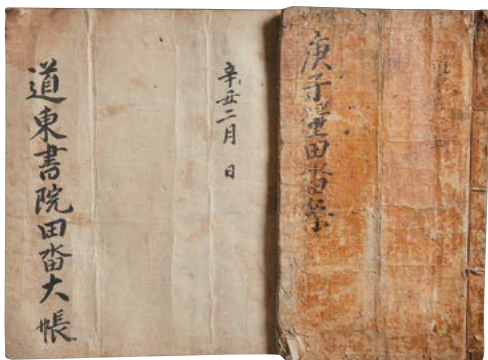 庚子量田畓案
辛丑二月 日
道東書院田畓大帳